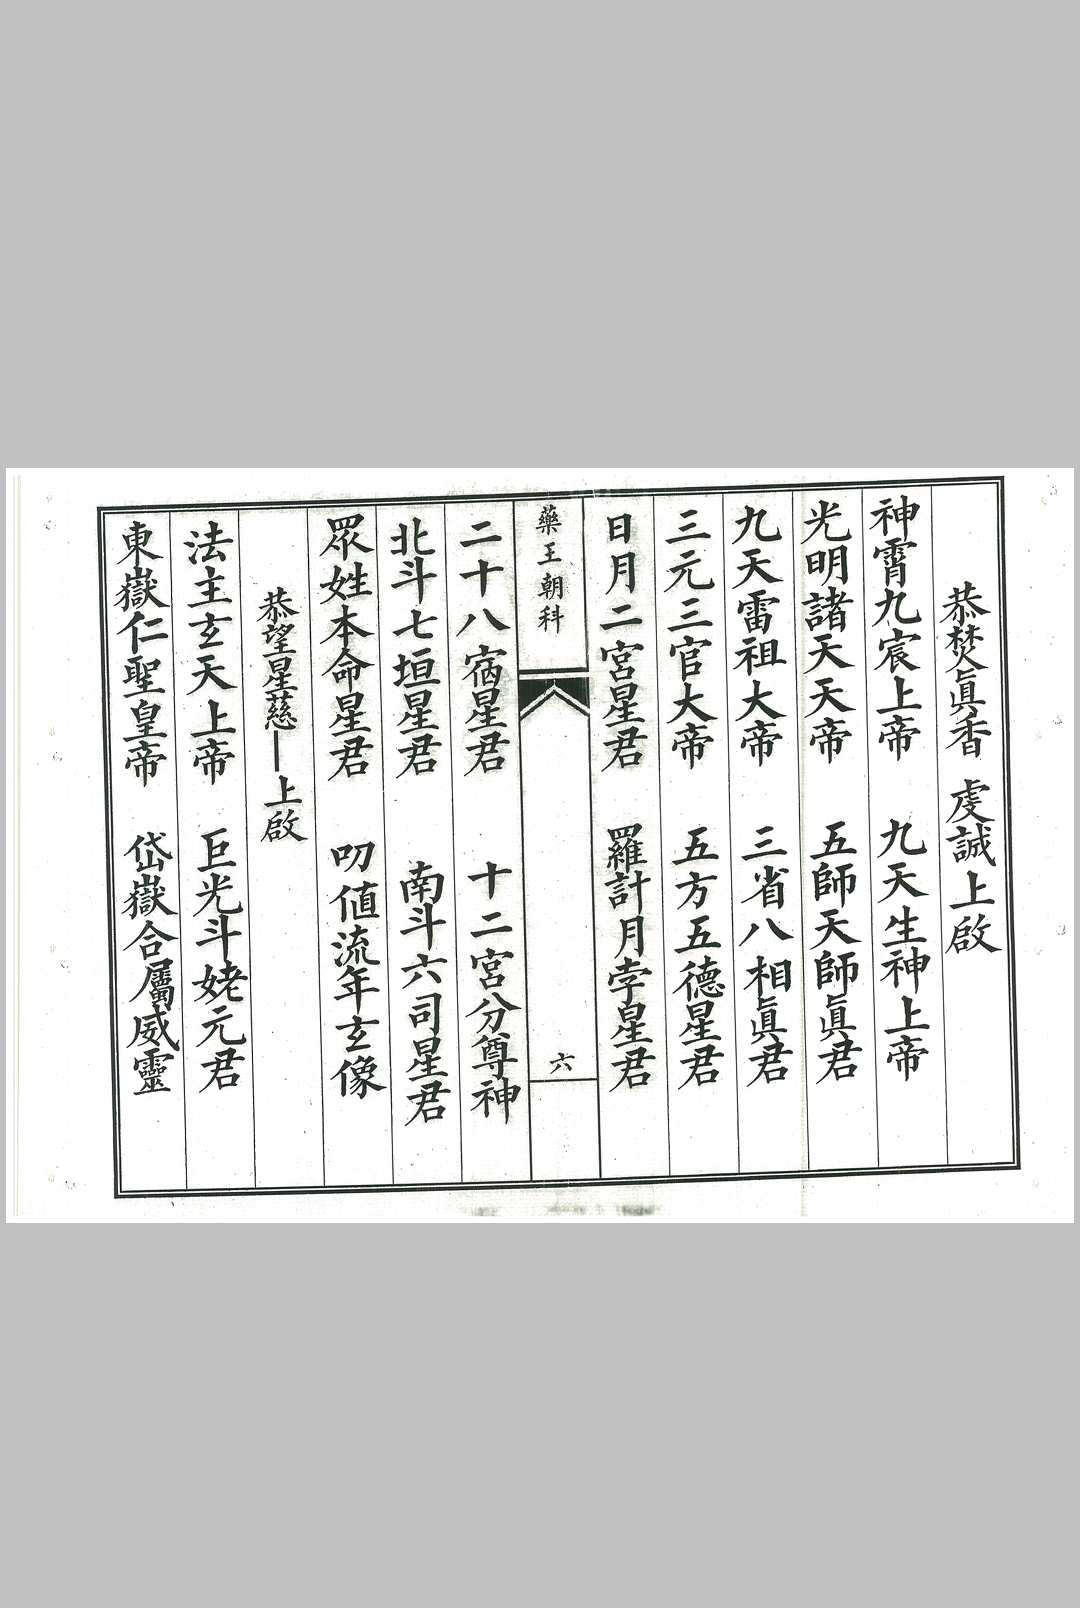 恭焚眞香 虔誠上啟
神霄九宸上帝 九天生神上帝
光明諸天天帝 五師天師眞君
九天雷祖大帝 三省八相眞君
三元三官大帝 五方五德星君
日月二宮星君 羅計月孛星君
藥王朝科
六
二十八宿星君 十二宮分尊神
北斗七垣星君 南斗六司星君
眾姓本命星君 叨値流年玄像
恭望星慈—上啟
法主玄天上帝 巨光斗姥元君
東嶽仁聖皇帝 岱嶽合屬威靈